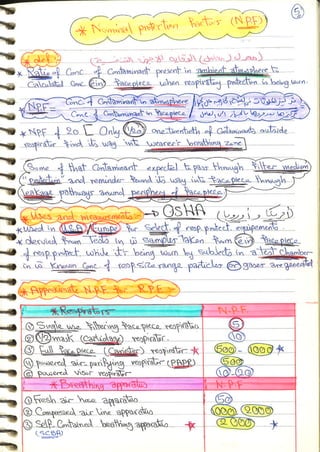 * Nominal protection Factor (NPF)
* def.
* Ratio of Conc. of Contaminant present in ambient atmosphere to
Calculated Conc (in) Facepiece when respiratory protection is being worn.
* NPF = Conc. of Contaminant in atmosphere
Conc of Contaminant in Facepiece
* NPF of 20 Only 1/20 one twentieth of Contaminants outside
respirator Find its way into wearer's breathing zone
Some of that Contaminant expected to pass through Filter medium
protection and reminder found its way into Facepiece through
leakage pathways around periphery of Facepiece
* Uses and measurements → OSHA (أمريكا و أوروبا)
* Used in USA / Europe for Select of resp. protect. equipements
* derived from Tests in w samples taken from (in) Facepiece
of resp. protect while it being worn by subjects in a test chamber
in w Known Conc of resp. size range particles or gases are generated
* Approximate NPF for RPE
* Respirators N.P.F
① Single use Filtering Facepiece respirators 5
② 1/2 mask (Cartridge) respirator 10
③ Full Facepiece (Canister) respirator * 500 - 1000 *
④ powered air purifying respirator (PAPR) 500
⑤ powered visor respirator 10-20
* Breathing apparatus N.P.F
① Fresh air hose apparatus 50
② Compressed air line apparatus 1000 2000
③ Self Contained breathing apparatus * 2000 *
(SCBA)